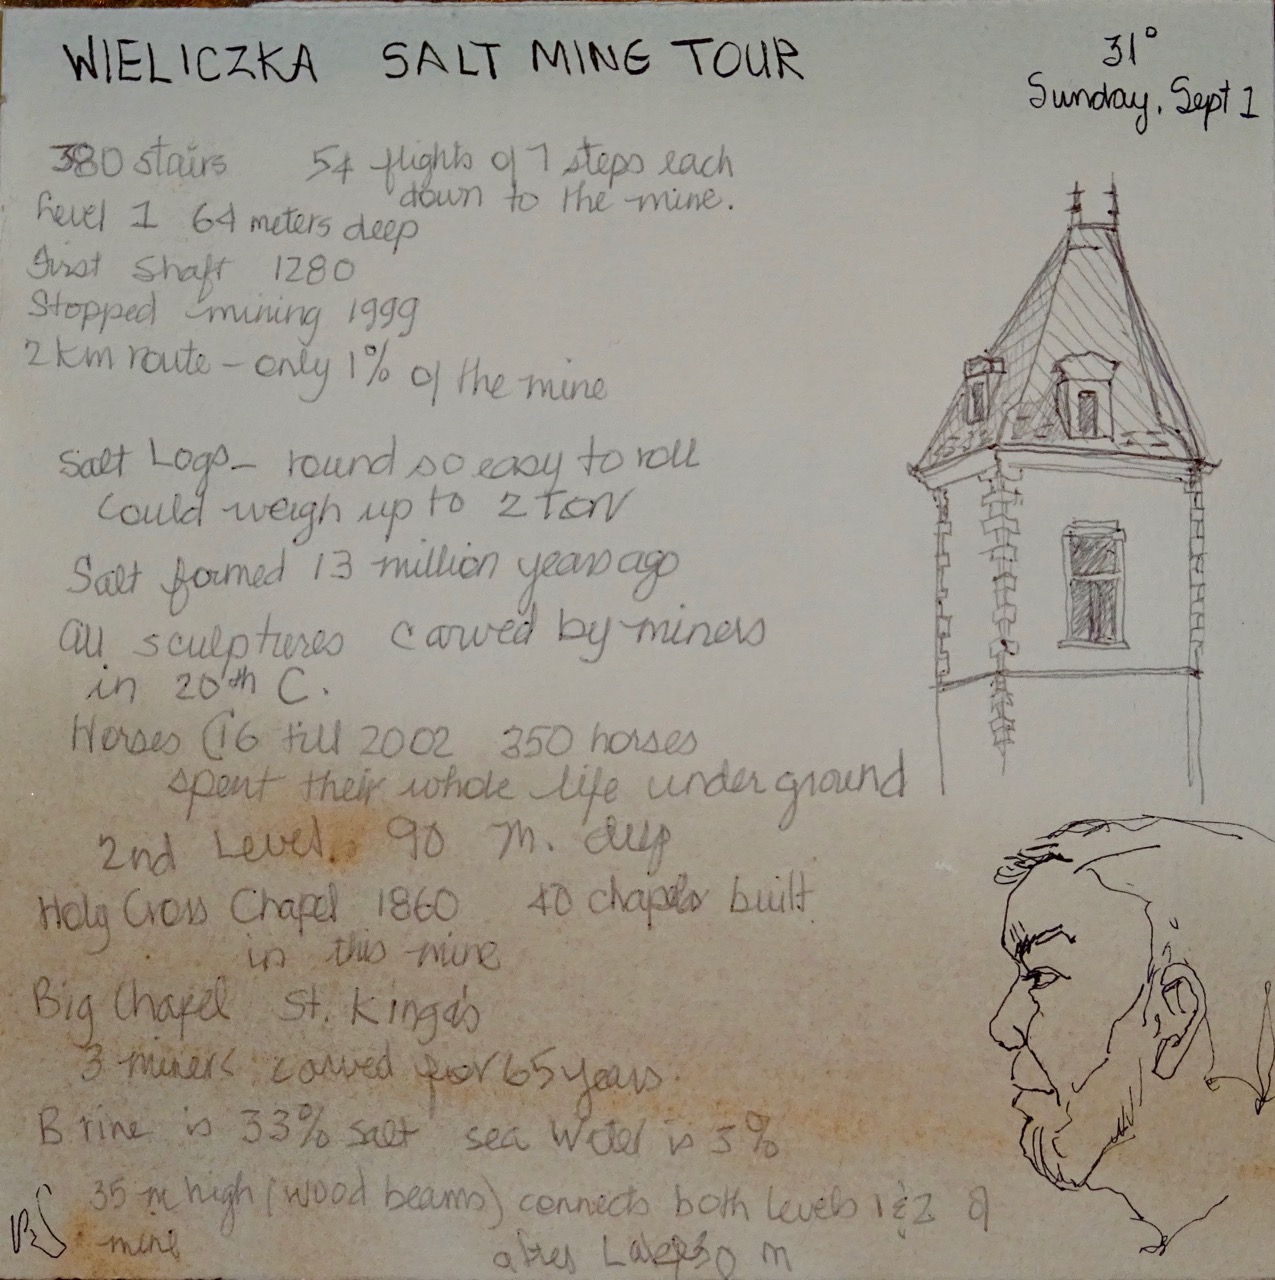 WIELICZKA SALT MINE TOUR
31°
Sunday, Sept 1
380 stairs 54 flights of 7 steps each
down to the mine.
Level 1 64 meters deep
First Shaft 1280
Stopped mining 1999
2 km route – only 1% of the mine
Salt Logs – round so easy to roll
Could weigh up to 2 TON
Salt formed 13 million years ago
All sculptures carved by miners
in 20th C.
Horses C16 till 2002 350 horses
spent their whole life underground
2nd Level. 90 M. deep
Holy Cross Chapel 1860 40 chapels built
in this mine
Big Chapel St. Kinga's
3 miners carved for 65 years.
Brine is 33% salt sea water is 3%
35 m high (wood beams) connects both levels 1 & 2 of
mine
m